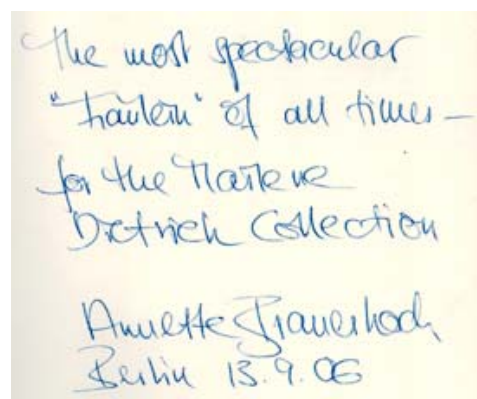 The most spectacular
"Fräulein" of all times –
for the Marlene
Dietrich Collection
Annette Brauerhoch
Berlin 13.9.06